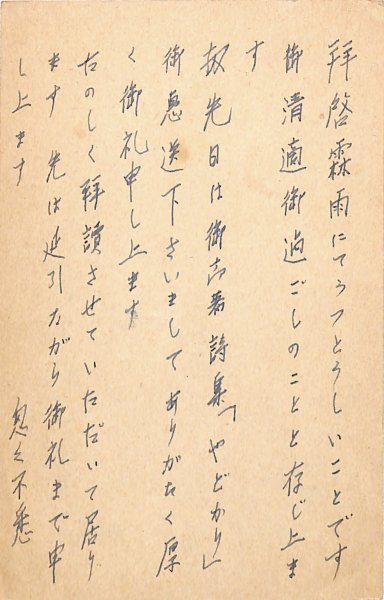 拝啓霖雨にてうつとうしいことです
御清適御過ごしのことと存じ上ま
す
扨先日は御高著詩集「やどかり」
御恵送下さいましてありがたく厚
く御礼申し上ます
たのしく拝讀させていただいて居り
ます 先は延引ながら御礼まで申
し上ます
匆々不悉